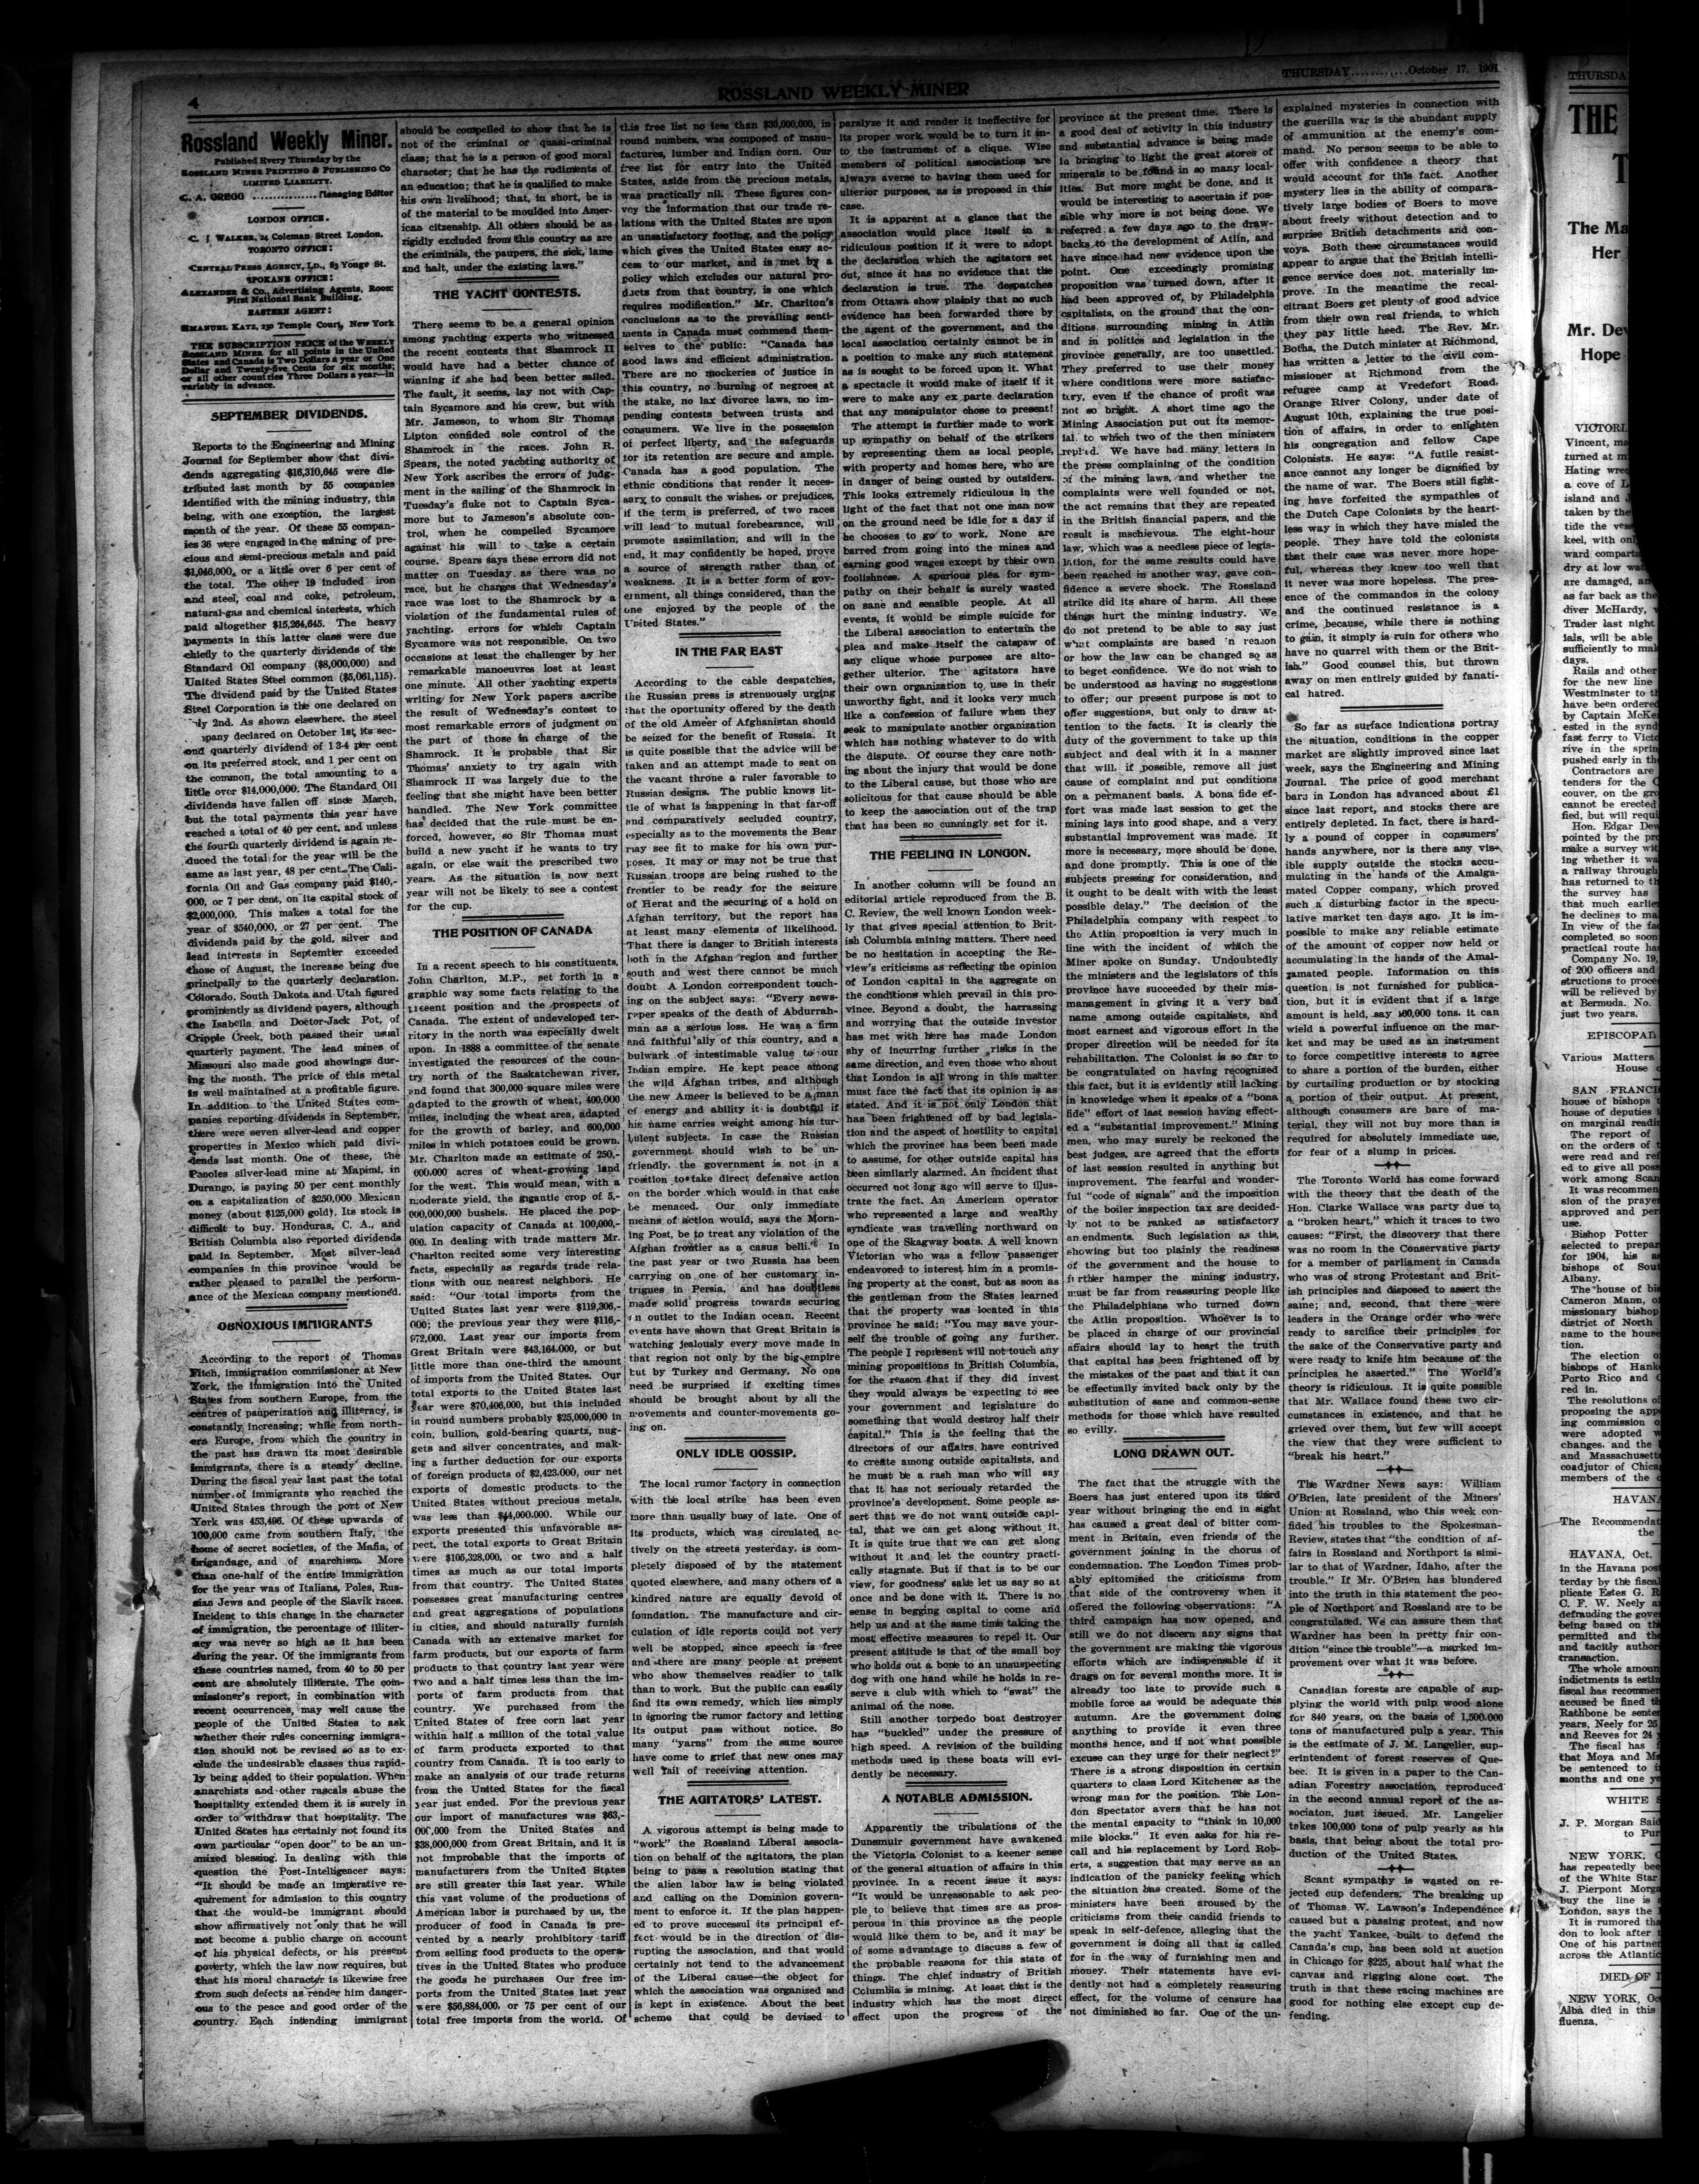 4
ROSSLAND WEEKLY MINER
THURSDAY............October 17, 1901
Rossland Weekly Miner.
Published Every Thursday by the
ROSSLAND MINER PRINTING & PUBLISHING CO
LIMITED LIABILITY.
C. A. GREGG ................Managing Editor
LONDON OFFICE.
C. J WALKER, 24 Coleman Street London.
TORONTO OFFICE:
CENTRAL PRESS AGENCY, LD., 83 Yonge St.
SPOKANE OFFICE:
ALEXANDER & CO., Advertising Agents, Room
First National Bank Building.
EASTERN AGENT:
EMANUEL KATZ, 230 Temple Court, New York
THE SUBSCRIPTION PRICE of the WEEKLY
ROSSLAND MINER for all points in the United
States and Canada is Two Dollars a year or One
Dollar and Twenty-five Cents for six months;
or all other countries Three Dollars a year—in
variably in advance.
SEPTEMBER DIVIDENDS.
Reports to the Engineering and Mining
Journal for September show that divi-
dends aggregating $16,310,645 were dis-
tributed last month by 55 companies
identified with the mining industry, this
being, with one exception, the largest
month of the year. Of these 55 compan-
ies 36 were engaged in the mining of pre-
cious and semi-precious metals and paid
$1,046,000, or a little over 6 per cent of
the total. The other 19 included iron
and steel, coal and coke, petroleum,
natural-gas and chemical interests, which
paid altogether $15,264,645. The heavy
payments in this latter class were due
chiefly to the quarterly dividends of the
Standard Oil company ($8,000,000) and
United States Steel common ($5,061,115).
The dividend paid by the United States
Steel Corporation is the one declared on
ly 2nd. As shown elsewhere, the steel
pany declared on October 1st, its sec-
ond quarterly dividend of 1 3-4 per cent
on its preferred stock, and 1 per cent on
the common, the total amounting to a
little over $14,000,000. The Standard Oil
dividends have fallen off since March,
but the total payments this year have
reached a total of 40 per cent, and unless
the fourth quarterly dividend is again re-
duced the total for the year will be the
same as last year, 48 per cent. The Cali-
fornia Oil and Gas company paid $140,-
000, or 7 per cent, on its capital stock of
$2,000,000. This makes a total for the
year of $540,000, or 27 per cent. The
dividends paid by the gold, silver and
lead interests in September exceeded
those of August, the increase being due
principally to the quarterly declaration.
Colorado, South Dakota and Utah figured
prominently as dividend payers, although
the Isabella and Doctor-Jack Pot, of
Cripple Creek, both passed their usual
quarterly payment. The lead mines of
Missouri also made good showings dur-
ing the month. The price of this metal
is well maintained at a profitable figure.
In addition to the United States com-
panies reporting dividends in September,
there were seven silver-lead and copper
properties in Mexico which paid divi-
dends last month. One of these, the
Panoles silver-lead mine at Mapimi, in
Durango, is paying 50 per cent monthly
on a capitalization of $250,000 Mexican
money (about $125,000 gold). Its stock is
difficult to buy. Honduras, C. A., and
British Columbia also reported dividends
paid in September. Most silver-lead
companies in this province would be
rather pleased to parallel the perform-
ance of the Mexican company mentioned.
OBNOXIOUS IMMIGRANTS
According to the report of Thomas
Fitch, immigration commissioner at New
York, the immigration into the United
States from southern Europe, from the
centres of pauperization and illiteracy, is
constantly increasing; while from north-
ern Europe, from which the country in
the past has drawn its most desirable
immigrants, there is a steady decline.
During the fiscal year last past the total
number of immigrants who reached the
United States through the port of New
York was 453,496. Of these upwards of
100,000 came from southern Italy, the
home of secret societies, of the Mafia, of
brigandage, and of anarchism. More
than one-half of the entire immigration
for the year was of Italians, Poles, Rus-
sian Jews and people of the Slavik races.
Incident to this change in the character
of immigration, the percentage of illiter-
acy was never so high as it has been
during the year. Of the immigrants from
these countries named, from 40 to 50 per
cent are absolutely illiterate. The com-
missioner's report, in combination with
recent occurrences, may well cause the
people of the United States to ask
whether their rules concerning immigra-
tion should not be revised so as to ex-
clude the undesirable classes thus rapid-
ly being added to their population. When
anarchists and other rascals abuse the
hospitality extended them it is surely in
order to withdraw that hospitality. The
United States has certainly not found its
own particular "open door" to be an un-
mixed blessing. In dealing with this
question the Post-Intelligencer says:
"It should be made an imperative re-
quirement for admission to this country
that the would-be immigrant should
show affirmatively not only that he will
not become a public charge on account
of his physical defects, or his present
poverty, which the law now requires, but
that his moral character is likewise free
from such defects as render him danger-
ous to the peace and good order of the
country. Each intending immigrant
should be compelled to show that he is
not of the criminal or quasi-criminal
class; that he is a person of good moral
character; that he has the rudiments of
an education; that he is qualified to make
his own livelihood; that, in short, he is
of the material to be moulded into Amer-
ican citzenship. All others should be as
rigidly excluded from this country as are
the criminals, the paupers, the sick, lame
and halt, under the existing laws."
THE YACHT CONTESTS.
There seems to be a general opinion
among yachting experts who witnessed
the recent contests that Shamrock II
would have had a better chance of
winning if she had been better sailed.
The fault, it seems, lay not with Cap-
tain Sycamore and his crew, but with
Mr. Jameson, to whom Sir Thomas
Lipton confided sole control of the
Shamrock in the races. John R.
Spears, the noted yachting authority of
New York ascribes the errors of judg-
ment in the sailing of the Shamrock in
Tuesday's fluke not to Captain Syca-
more but to Jameson's absolute con-
trol, when he compelled Sycamore
against his will to take a certain
course. Spears says these errors did not
matter on Tuesday as there was no
race, but he charges that Wednesday's
race was lost to the Shamrock by a
violation of the fundamental rules of
yachting, errors for which Captain
Sycamore was not responsible. On two
occasions at least the challenger by her
remarkable manoeuvres lost at least
one minute. All other yachting experts
writing for New York papers ascribe
the result of Wednesday's contest to
most remarkable errors of judgment on
the part of those in charge of the
Shamrock. It is probable that Sir
Thomas' anxiety to try again with
Shamrock II was largely due to the
feeling that she might have been better
handled. The New York committee
has decided that the rule must be en-
forced, however, so Sir Thomas must
build a new yacht if he wants to try
again, or else wait the prescribed two
years. As the situation is now next
year will not be likely to see a contest
for the cup.
THE POSITION OF CANADA
In a recent speech to his constituents,
John Charlton, M.P., set forth in a
graphic way some facts relating to the
present position and the prospects of
Canada. The extent of undeveloped ter-
ritory in the north was especially dwelt
upon. In 1888 a committee of the senate
investigated the resources of the coun-
try north of the Saskatchewan river,
and found that 300,000 square miles were
adapted to the growth of wheat, 400,000
miles, including the wheat area, adapted
for the growth of barley, and 600,000
miles in which potatoes could be grown.
Mr. Charlton made an estimate of 250,-
000,000 acres of wheat-growing land
for the west. This would mean, with a
moderate yield, the gigantic crop of 5,-
000,000,000 bushels. He placed the pop-
ulation capacity of Canada at 100,000,-
000. In dealing with trade matters Mr.
Charlton recited some very interesting
facts, especially as regards trade rela-
tions with our nearest neighbors. He
said: "Our total imports from the
United States last year were $119,306,-
000; the previous year they were $116,-
972,000. Last year our imports from
Great Britain were $43,164,000, or but
little more than one-third the amount
of imports from the United States. Our
total exports to the United States last
year were $70,406,000, but this included
in round numbers probably $25,000,000 in
coin, bullion, gold-bearing quartz, nug-
gets and silver concentrates, and mak-
ing a further deduction for our exports
of foreign products of $2,423,000, our net
exports of domestic products to the
United States without precious metals,
was less than $44,000,000. While our
exports presented this unfavorable as-
pect, the total exports to Great Britain
were $105,328,000, or two and a half
times as much as our total imports
from that country. The United States
possesses great manufacturing centres
and great aggregations of populations
in cities, and should naturally furnish
Canada with an extensive market for
farm products, but our exports of farm
products to that country last year were
two and a half times less than the im-
ports of farm products from that
country. We purchased from the
United States of free corn last year
within half a million of the total value
of farm products exported to that
country from Canada. It is too early to
make an analysis of our trade returns
from the United States for the fiscal
year just ended. For the previous year
our import of manufactures was $63,-
000,000 from the United States and
$38,000,000 from Great Britain, and it is
not improbable that the imports of
manufacturers from the United States
are still greater this last year. While
this vast volume of the productions of
American labor is purchased by us, the
producer of food in Canada is pre-
vented by a nearly prohibitory tariff
from selling food products to the opera-
tives in the United States who produce
the goods he purchases Our free im-
ports from the United States last year
were $56,884,000, or 75 per cent of our
total free imports from the world. Of
this free list no less than $30,000,000, in
round numbers, was composed of manu-
factures, lumber and Indian corn. Our
free list for entry into the United
States, aside from the precious metals,
was practically nil. These figures con-
vey the information that our trade re-
lations with the United States are upon
an unsatisfactory footing, and the policy
which gives the United States easy ac-
cess to our market, and is met by a
policy which excludes our natural pro-
ducts from that country, is one which
requires modification." Mr. Charlton's
conclusions as to the prevailing senti-
ments in Canada must commend them-
selves to the public: "Canada has
good laws and efficient administration.
There are no mockeries of justice in
this country, no burning of negroes at
the stake, no lax divorce laws, no im-
pending contests between trusts and
consumers. We live in the possession
of perfect liberty, and the safeguards
for its retention are secure and ample.
Canada has a good population. The
ethnic conditions that render it neces-
sary to consult the wishes, or prejudices,
if the term is preferred, of two races
will lead to mutual forebearance, will
promote assimilation, and will in the
end, it may confidently be hoped, prove
a source of strength rather than of
weakness. It is a better form of gov-
ernment, all things considered, than the
one enjoyed by the people of the
United States."
IN THE FAR EAST
According to the cable despatches,
the Russian press is strenuously urging
that the oportunity offered by the death
of the old Ameer of Afghanistan should
be seized for the benefit of Russia. It
is quite possible that the advice will be
taken and an attempt made to seat on
the vacant throne a ruler favorable to
Russian designs. The public knows lit-
tle of what is happening in that far-off
and comparatively secluded country,
especially as to the movements the Bear
may see fit to make for his own pur-
poses. It may or may not be true that
Russian troops are being rushed to the
frontier to be ready for the seizure
of Herat and the securing of a hold on
Afghan territory, but the report has
at least many elements of likelihood.
That there is danger to British interests
both in the Afghan region and further
south and west there cannot be much
doubt A London correspondent touch-
ing on the subject says: "Every news-
paper speaks of the death of Abdurrah-
man as a serious loss. He was a firm
and faithful ally of this country, and a
bulwark of intestimable value to our
Indian empire. He kept peace among
the wild Afghan tribes, and although
the new Ameer is believed to be a man
of energy and ability it is doubtful if
his name carries weight among his tur-
bulent subjects. In case the Russian
government should wish to be un-
friendly, the government is not in a
position to take direct defensive action
on the border which would in that case
be menaced. Our only immediate
means of action would, says the Morn-
ing Post, be to treat any violation of the
Afghan frontier as a casus belli." In
the past year or two Russia has been
carrying on one of her customary in-
trigues in Persia, and has doubtless
made solid progress towards securing
an outlet to the Indian ocean. Recent
events have shown that Great Britain is
watching jealously every move made in
that region not only by the big empire
but by Turkey and Germany. No one
need be surprised if exciting times
should be brought about by all the
movements and counter-movements go-
ing on.
ONLY IDLE GOSSIP.
The local rumor factory in connection
with the local strike has been even
more than usually busy of late. One of
its products, which was circulated, ac-
tively on the streets yesterday, is com-
pletely disposed of by the statement
quoted elsewhere, and many others of a
kindred nature are equally devoid of
foundation. The manufacture and cir-
culation of idle reports could not very
well be stopped, since speech is free
and there are many people at present
who show themselves readier to talk
than to work. But the public can easily
find its own remedy, which lies simply
in ignoring the rumor factory and letting
its output pass without notice. So
many "yarns" from the same source
have come to grief that new ones may
well fail of receiving attention.
THE AGITATORS' LATEST.
A vigorous attempt is being made to
"work" the Rossland Liberal associa-
tion on behalf of the agitators, the plan
being to pass a resolution stating that
the alien labor law is being violated
and calling on the Dominion govern-
ment to enforce it. If the plan happen-
ed to prove successul its principal ef-
fect would be in the direction of dis-
rupting the association, and that would
certainly not tend to the advancement
of the Liberal cause—the object for
which the association was organized and
is kept in existence. About the best
scheme that could be devised to
paralyze it and render it ineffective for
its proper work would be to turn it in-
to the instrument of a clique. Wise
members of political associations are
always averse to having them used for
ulterior purposes, as is proposed in this
case.
It is apparent at a glance that the
association would place itself in a
ridiculous position if it were to adopt
the declaration which the agitators set
out, since it has no evidence that the
declaration is true. The despatches
from Ottawa show plainly that no such
evidence has been forwarded there by
the agent of the government, and the
local association certainly cannot be in
a position to make any such statement
as is sought to be forced upon it. What
a spectacle it would make of itself if it
were to make any ex parte declaration
that any manipulator chose to present!
The attempt is further made to work
up sympathy on behalf of the strikers
by representing them as local people,
with property and homes here, who are
in danger of being ousted by outsiders.
This looks extremely ridiculous in the
light of the fact that not one man now
on the ground need be idle for a day if
he chooses to go to work. None are
barred from going into the mines and
earning good wages except by their own
foolishness. A spurious plea for sym-
pathy on their behalf is surely wasted
on sane and sensible people. At all
events, it would be simple suicide for
the Liberal association to entertain the
plea and make itself the catspaw of
any clique whose purposes are alto-
gether ulterior. The agitators have
their own organization to use in their
unworthy fight, and it looks very much
like a confession of failure when they
seek to manipulate another organization
which has nothing whatever to do with
the dispute. Of course they care noth-
ing about the injury that would be done
to the Liberal cause, but those who are
solicitous for that cause should be able
to keep the association out of the trap
that has been so cunningly set for it.
THE FEELING IN LONDON.
In another column will be found an
editorial article reproduced from the B.
C. Review, the well known London week-
ly that gives special attention to Brit-
ish Columbia mining matters. There need
be no hesitation in accepting the Re-
view's criticisms as reflecting the opinion
of London capital in the aggregate on
the conditions which prevail in this pro-
vince. Beyond a doubt, the harrassing
and worrying that the outside investor
has met with here has made London
shy of incurring further risks in the
same direction, and even those who shout
that London is all wrong in this matter
must face the fact that its opinion is as
stated. And it is not only London that
has been frightened off by bad legisla-
tion and the aspect of hostility to capital
which the province has been been made
to assume, for other outside capital has
been similarly alarmed. An incident that
occurred not long ago will serve to illus-
trate the fact. An American operator
who represented a large and wealthy
syndicate was travelling northward on
one of the Skagway boats. A well known
Victorian who was a fellow passenger
endeavored to interest him in a promis-
ing property at the coast, but as soon as
the gentleman from the States learned
that the property was located in this
province he said: "You may save your-
self the trouble of going any further.
The people I represent will not touch any
mining propositions in British Columbia,
for the reason that if they did invest
they would always be expecting to see
your government and legislature do
something that would destroy half their
capital." This is the feeling that the
directors of our affairs have contrived
to create among outside capitalists, and
he must be a rash man who will say
that it has not seriously retarded the
province's development. Some people as-
sert that we do not want outside capi-
tal, that we can get along without it.
It is quite true that we can get along
without it and let the country practi-
cally stagnate. But if that is to be our
view, for goodness' sake let us say so at
once and be done with it. There is no
sense in begging capital to come and
help us and at the same time taking the
most effective measures to repel it. Our
present attitude is that of the small boy
who holds out a bone to an unsuspecting
dog with one hand while he holds in re-
serve a club with which to "swat" the
animal on the nose.
Still another torpedo boat destroyer
has "buckled" under the pressure of
high speed. A revision of the building
methods used in these boats will evi-
dently be necessary.
A NOTABLE ADMISSION.
Apparently the tribulations of the
Dunsmuir government have awakened
the Victoria Colonist to a keener sense
of the general situation of affairs in this
province. In a recent issue it says:
"It would be unreasonable to ask peo-
ple to believe that times are as pros-
perous in this province as the people
would like them to be, and it may be
of some advantage to discuss a few of
the probable reasons for this state of
things. The chief industry of British
Columbia is mining. At least that is the
industry which has the most direct
effect upon the progress of the
province at the present time. There is
a good deal of activity in this industry
and substantial advance is being made
in bringing to light the great stores of
minerals to be found in so many local-
ities. But more might be done, and it
would be interesting to ascertain if pos-
sible why more is not being done. We
referred a few days ago to the draw-
backs to the development of Atlin, and
have since had new evidence upon the
point. One exceedingly promising
proposition was turned down, after it
had been approved of, by Philadelphia
capitalists, on the ground that the con-
ditions surrounding mining in Atlin
and in politics and legislation in the
province generally, are too unsettled.
They preferred to use their money
where conditions were more satisfac-
tory, even if the chance of profit was
not so bright. A short time ago the
Mining Association put out its memor-
ial to which two of the then ministers
replied. We have bad many letters in
the press complaining of the condition
of the mining laws, and whether the
complaints were well founded or not,
the act remains that they are repeated
in the British financial papers, and the
result is mschievous. The eight-hour
law, which was a needless piece of legis-
lation, for the same results could have
been reached in another way, gave con-
fidence a severe shock. The Rossland
strike did its share of harm. All these
things hurt the mining industry. We
do not pretend to be able to say just
what complaints are based in reason
or how the law can be changed so as
to beget confidence. We do not wish to
be understood as having no suggestions
to offer; our present purpose is not to
offer suggestions, but only to draw at-
tention to the facts. It is clearly the
duty of the government to take up this
subject and deal with it in a manner
that will, if possible, remove all just
cause of complaint and put conditions
on a permanent basis. A bona fide ef-
fort was made last session to get the
mining lays into good shape, and a very
substantial improvement was made. If
more is necessary, more should be done,
and done promptly. This is one of the
subjects pressing for consideration, and
it ought to be dealt with with the least
possible delay." The decision of the
Philadelphia company with respect to
the Atlin proposition is very much in
line with the incident of which the
Miner spoke on Sunday. Undoubtedly
the ministers and the legislators of this
province have succeeded by their mis-
management in giving it a very bad
name among outside capitalists, and
most earnest and vigorous effort in the
proper direction will be needed for its
rehabilitation. The Colonist is so far to
be congratulated on having recognized
this fact, but it is evidently still lacking
in knowledge when it speaks of a "bona
fide" effort of last session having effect-
ed a "substantial improvement." Mining
men, who may surely be reckoned the
best judges, are agreed that the efforts
of last session resulted in anything but
improvement. The fearful and wonder-
ful "code of signals" and the imposition
of the boiler inspection tax are decided-
ly not to be ranked as satisfactory
amendments. Such legislation as this,
showing but too plainly the readiness
of the government and the house to
further hamper the mining industry,
must be far from reassuring people like
the Philadelphians who turned down
the Atlin proposition. Whoever is to
be placed in charge of our provincial
affairs should lay to heart the truth
that capital has been frightened off by
the mistakes of the past and that it can
be effectually invited back only by the
substitution of sane and common-sense
methods for those which have resulted
so evilly.
LONG DRAWN OUT.
The fact that the struggle with the
Boers has just entered upon its third
year without bringing the end in sight
has caused a great deal of bitter com-
ment in Britain, even friends of the
government joining in the chorus of
condemnation. The London Times prob-
ably epitomised the criticisms from
that side of the controversy when it
offered the following observations: "A
third campaign has now opened, and
still we do not discern any signs that
the government are making the vigorous
efforts which are indispensable if it
drags on for several months more. It is
already too late to provide such a
mobile force as would be adequate this
autumn. Are the government doing
anything to provide it even three
months hence, and if not what possible
excuse can they urge for their neglect?"
There is a strong disposition in certain
quarters to class Lord Kitchener as the
wrong man for the position. The Lon-
don Spectator avers that he has not
the mental capacity to "think in 10,000
mile blocks." It even asks for his re-
call and his replacement by Lord Rob-
erts, a suggestion that may serve as an
indication of the panicky feeling which
the situation has created. Some of the
ministers have been aroused by the
criticisms from their candid friends to
speak in self-defence, alleging that the
government is doing all that is called
for in the way of furnishing men and
money. Their statements have evi-
dently not had a completely reassuring
effect, for the volume of censure has
not diminished so far. One of the un-
explained mysteries in connection with
the guerilla war is the abundant supply
of ammunition at the enemy's com-
mand. No person seems to be able to
offer with confidence a theory that
would account for this fact. Another
mystery lies in the ability of compara-
tively large bodies of Boers to move
about freely without detection and to
surprise British detachments and con-
voys. Both these circumstances would
appear to argue that the British intelli-
gence service does not materially im-
prove. In the meantime the recal-
citrant Boers get plenty of good advice
from their own real friends, to which
they pay little heed. The Rev. Mr.
Botha, the Dutch minister at Richmond,
has written a letter to the civil com-
missioner at Richmond from the
refugee camp at Vredefort Road,
Orange River Colony, under date of
August 10th, explaining the true posi-
tion of affairs, in order to enlighten
his congregation and fellow Cape
Colonists. He says: "A futile resist-
ance cannot any longer be dignified by
the name of war. The Boers still fight-
ing have forfeited the sympathies of
the Dutch Cape Colonists by the heart-
less way in which they have misled the
people. They have told the colonists
that their case was never more hope-
ful, whereas they knew too well that
it never was more hopeless. The pres-
ence of the commandos in the colony
and the continued resistance is a
crime, because, while there is nothing
to gain, it simply is ruin for others who
have no quarrel with them or the Brit-
ish." Good counsel this, but thrown
away on men entirely guided by fanati-
cal hatred.
So far as surface indications portray
the situation, conditions in the copper
market are slightly improved since last
week, says the Engineering and Mining
Journal. The price of good merchant
bars in London has advanced about £1
since last report, and stocks there are
entirely depleted. In fact, there is hard-
ly a pound of copper in consumers'
hands anywhere, nor is there any vis-
ible supply outside the stocks accu-
mulating in the hands of the Amalga-
mated Copper company, which proved
such a disturbing factor in the specu-
lative market ten days ago. It is im-
possible to make any reliable estimate
of the amount of copper now held or
accumulating in the hands of the Amal-
gamated people. Information on this
question is not furnished for publica-
tion, but it is evident that if a large
amount is held, say 100,000 tons, it can
wield a powerful influence on the mar-
ket and may be used as an instrument
to force competitive interests to agree
to share a portion of the burden, either
by curtailing production or by stocking
a portion of their output. At present,
although consumers are bare of ma-
terial, they will not buy more than is
required for absolutely immediate use,
for fear of a slump in prices.
The Toronto World has come forward
with the theory that the death of the
Hon. Clarke Wallace was party due to
a "broken heart," which it traces to two
causes: "First, the discovery that there
was no room in the Conservative party
for a member of parliament in Canada
who was of strong Protestant and Brit-
ish principles and disposed to assert the
same; and, second, that there were
leaders in the Orange order who were
ready to sarcifice their principles for
the sake of the Conservative party and
were ready to knife him because of the
principles he asserted." The World's
theory is ridiculous. It is quite possible
that Mr. Wallace found these two cir-
cumstances in existence, and that he
grieved over them, but few will accept
the view that they were sufficient to
"break his heart."
The Wardner News says: William
O'Brien, late president of the Miners'
Union at Rossland, who this week con-
fided his troubles to the Spokesman-
Review, states that "the condition of af-
fairs in Rossland and Northport is simi-
lar to that of Wardner, Idaho, after the
trouble." If Mr. O'Brien has blundered
into the truth in this statement the peo-
ple of Northport and Rossland are to be
congratulated. We can assure them that
Wardner has been in pretty fair con-
dition "since the trouble"—a marked im-
provement over what it was before.
Canadian forests are capable of sup-
plying the world with pulp wood alone
for 840 years, on the basis of 1,500,000
tons of manufactured pulp a year. This
is the estimate of J. M. Langelier, sup-
erintendent of forest reserves of Que-
bec. It is given in a paper to the Can-
adian Forestry association, reproduced
in the second annual report of the as-
sociaton, just issued. Mr. Langelier
takes 100,000 tons of pulp yearly as his
basis, that being about the total pro-
duction of the United States.
Scant sympathy is wasted on re-
jected cup defenders. The breaking up
of Thomas W. Lawson's Independence
caused but a passing protest, and now
the yacht Yankee, built to defend the
Canada's cup, has been sold at auction
in Chicago for $225, about half what the
canvas and rigging alone cost. The
truth is that these racing machines are
good for nothing else except cup de-
fending.
THURSDA
THE
T
The Ma
Her
Mr. Dev
Hope
VICTORI
Vincent, ma
turned at m
Hating wre
a cove of
island and
taken by the
tide the vess
keel, with onl
ward comparts
dry at low wa
are damaged, a
as far back as the
diver McHardy,
Trader last night
ials, will be able
sufficiently to mak
days.
Rails and other
for the new line
Westminster to th
have been ordered
by Captain McKe
ested in the synd
fast ferry to Victo
rive in the spring
pushed early in th
Contractors are
tenders for the C
couver, on the gro
cannot be erected
fied, but will requi
Hon. Edgar Dew
pointed by the pro
make a survey wit
ing whether it wa
a railway through
has returned to th
the survey has
that much earlie
he declines to ma
In view of the fac
completed so soon
practical route ha
Company No. 19,
of 200 officers and
structions to proce
will be relieved by
at Bermuda. No.
just two years.
EPISCOPAL
Various Matters
House
SAN FRANCI
house of bishops
house of deputies
on marginal readi
The report of
on the orders of t
were read and ref
ed to give all poss
work among Scan
It was recommen
sion of the prayer
approved and per
use.
Bishop Potter
selected to prepar
for 1904, his as
bishops of Sout
Albany.
The house of bis
Cameron Mann, of
missionary bishop
district of North
name to the house
tion.
The election o
bishops of Hank
Porto Rico and C
red in.
The resolutions of
proposing the app
ing commission o
were adopted w
changes, and the
and Massachusetts
coadjutor of Chica
members of the c
HAVANA
The Recommendat
the
HAVANA, Oct.
in the Havana post
terday by the fiscal
plicate Estes G. R
C. F. W. Neely a
defrauding the gove
being based on th
permitted and the
and tacitly author
transaction.
The whole amoun
indictments is estim
fiscal has recommen
accused be fined th
Rathbone be senten
years, Neely for 25
and Reeves for 24 y
The fiscal has f
that Moya and Ma
be sentenced to i
months and one ye
WHITE S
J. P. Morgan Said
to Pur
NEW YORK, O
has repeatedly bee
of the White Star
J. Pierpont Morga
buy the line is
London, says the
It is rumored tha
don to look after t
One of his partner
across the Atlantic
DIED OF I
NEW YORK, Oc
Alba died in this
fluenza.